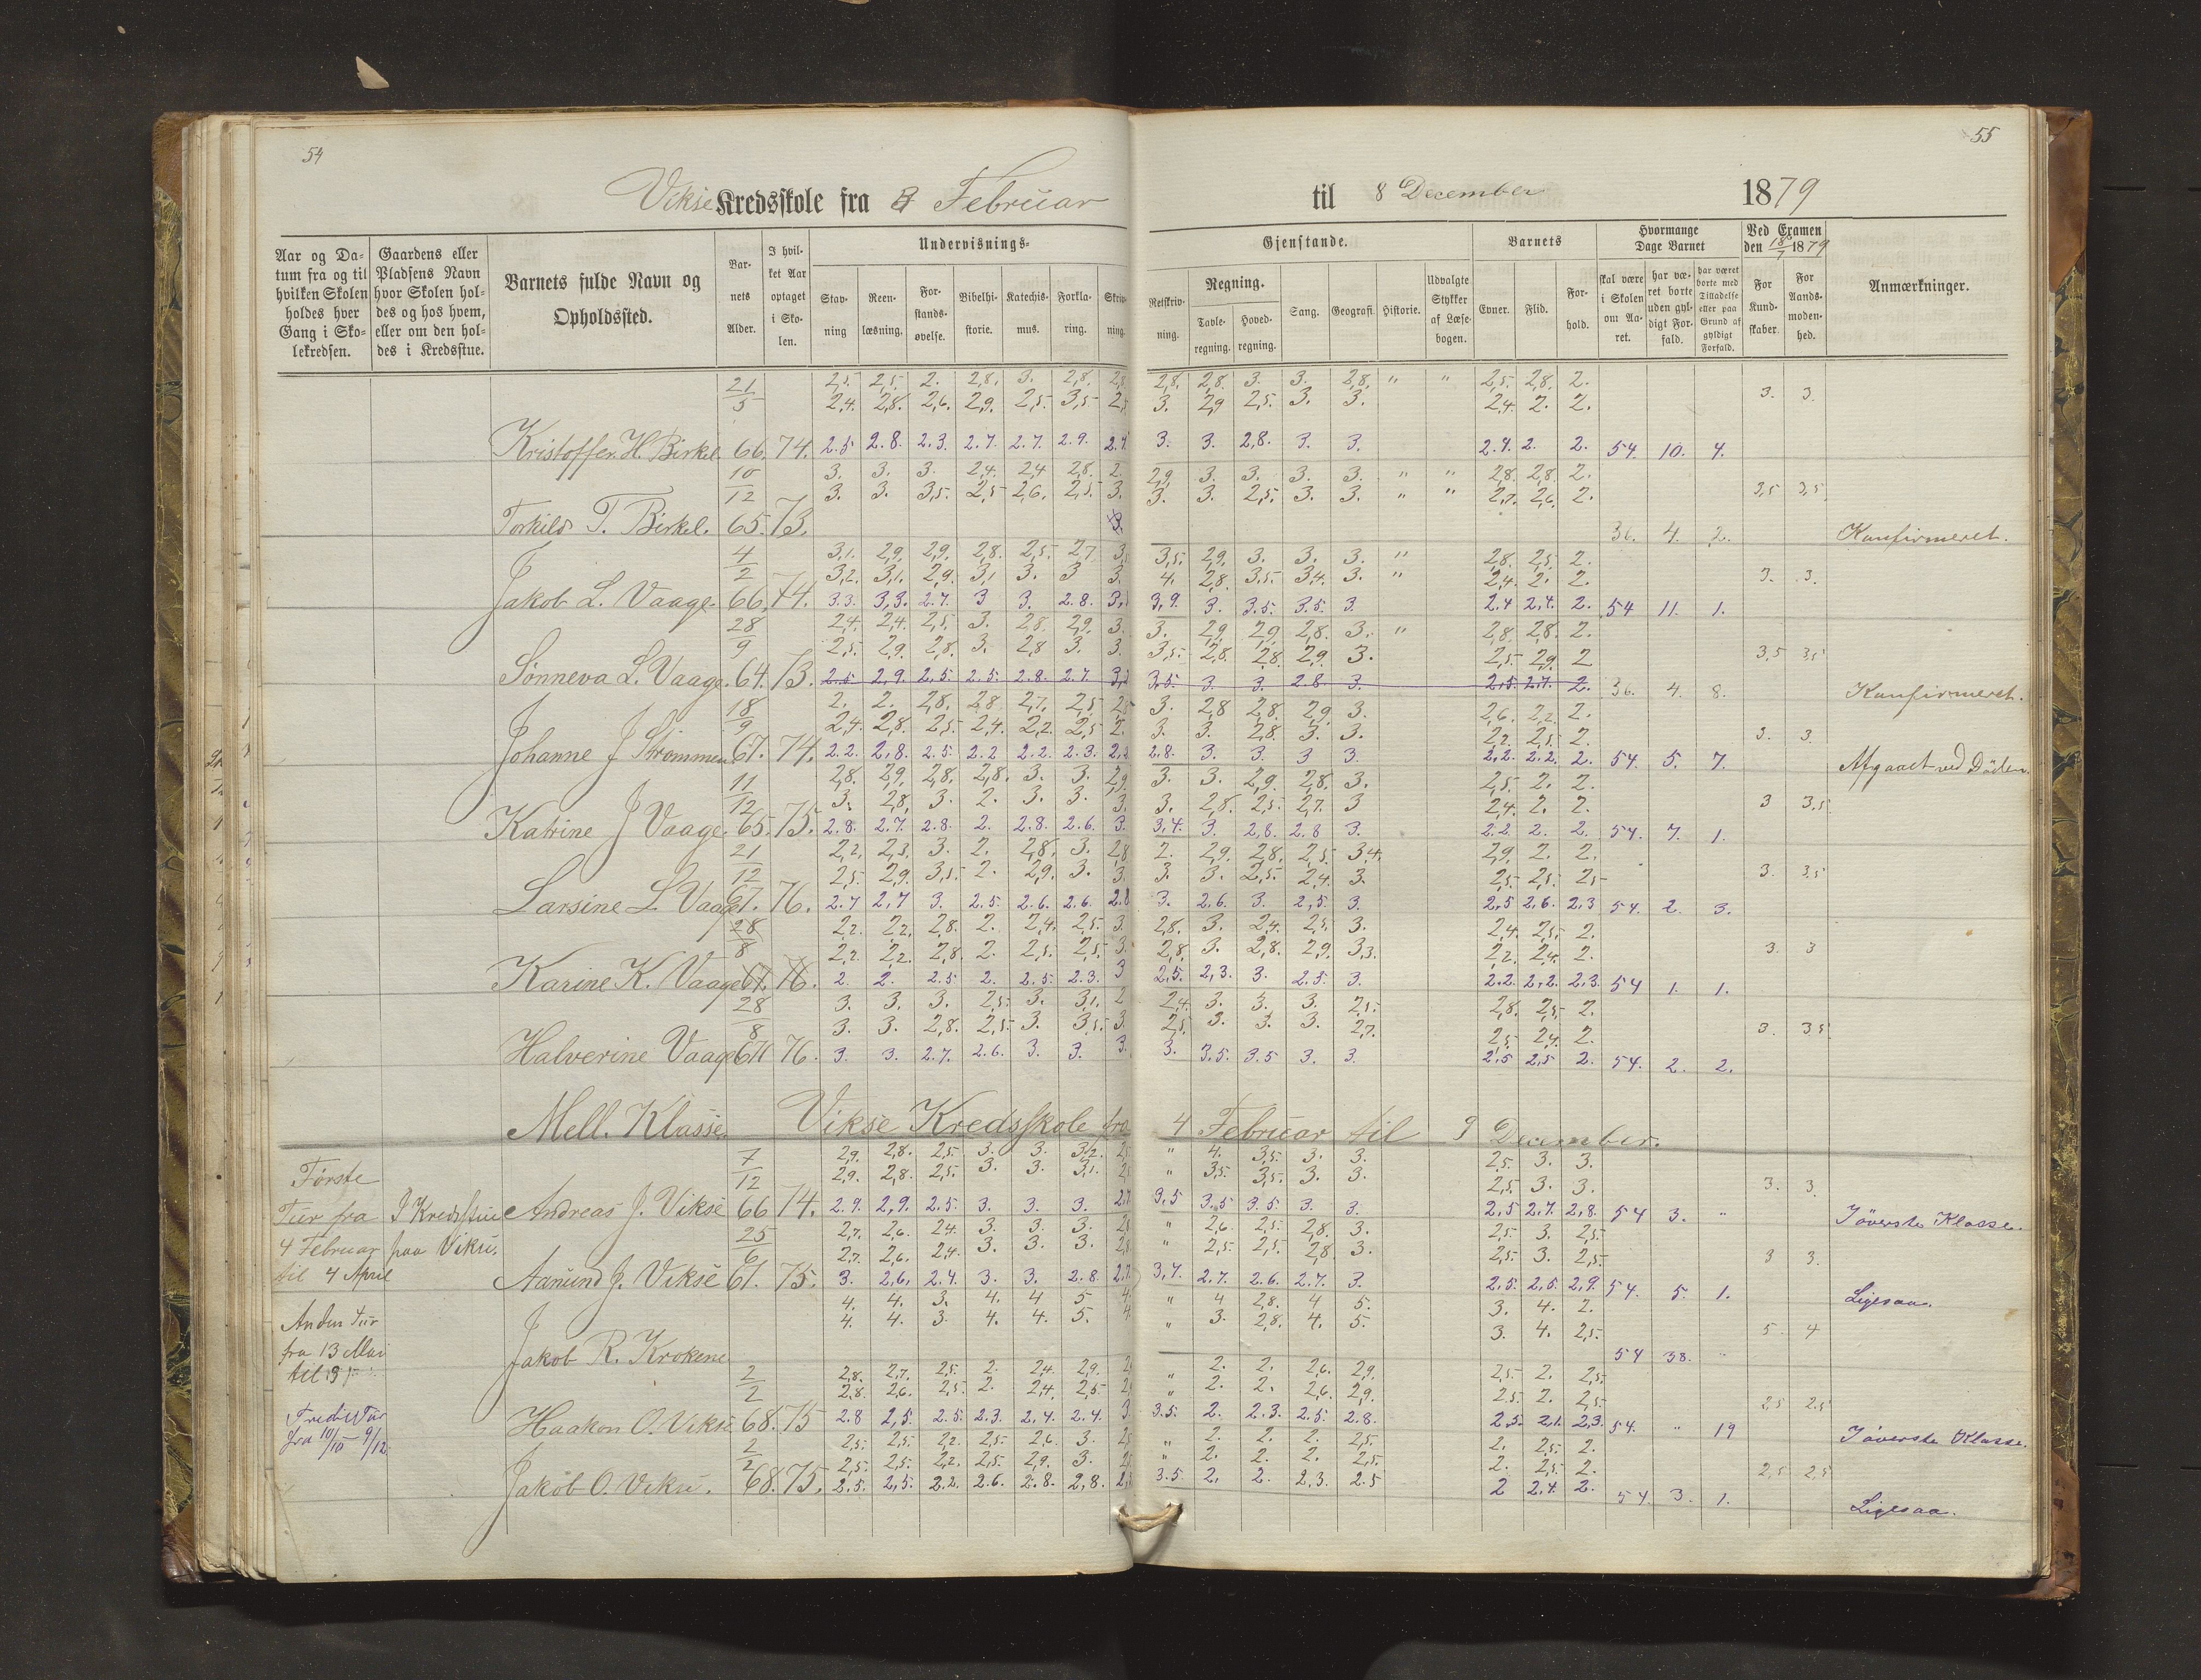 54
55
Vikse Kredsskole fra 3 Februar til 8 December 1879
Aar og Datum fra og til hvilken Skolen holdes hver Gang i Skolekredsen.
Gaardens eller Pladsens Navn hvor Skolen holdes og hos hvem, eller om den holdes i Kredsstue.
Barnets fulde Navn og Opholdssted.
Barnets Alder.
I hvilket Aar optaget i Skolen.
Undervisnings-
Gjenstande.
Stavning
Reenlæsning.
Forstandsøvelse.
Bibelhistorie.
Katechismus.
Forklaring.
Skrivning.
Retskrivning.
Regning.
Tavleregning.
Hovedregning.
Sang.
Geografi.
Historie.
Udvalgte Stykker af Læsebogen.
Barnets
Evner.
Flid.
Forhold.
Hvormange Dage Barnet
skal være i Skolen om Aaret.
har været borte uden gyldigt Forfald.
har været borte med Tilladelse eller paa Grund af gyldigt Forfald.
Ved Examen den 18/7 1879
For Kundskaber.
For Aandsmodenhed.
Anmærkninger.
21/5 2,5. 2,5. 2. 2,8. 3. 2,8. 2,8 2,8. 2,8. 3. 3. 2,8. " " 2,5. 2,8. 2.
2,4. 2,8. 2,6. 2,9. 2,5. 3,5 3. 2,9 2,5. 3. 3. 2,4. 2. 2. 3. 3.
Kristoffer H. Birkel. 66. 74. 2.5 2.8. 2.3. 2.7. 2.7. 2.9. 2.4. 3. 3. 2,8. 3. 3. 2.4. 2. 2. 54. 10. 4.
10/12 3. 3. 3. 2,4. 2,4 2,8. 2. 2,9. 3. 3. 3. 3. " " 2,8. 2,8. 2.
3. 3. 3,5. 2,5 2,6. 2,5. 3. 3. 3. 2,5. 3. 3. " " 2,7. 2,6. 2. 3,5 3,5
Torkild T. Birkel. 65. 73. 3. 36. 4. 2. Konfirmeret.
4/2 3,1. 2,9. 2,9. 2,8. 2,5. 2,7 3, 3,5. 2,9. 3. 3. 3. " 2,8. 2,5. 2.
3,2. 3,1. 2,9. 3,1 3. 3 3. 4. 2,8. 3,5. 3,4. 3. " 2,4. 2. 2. 3. 3.
Jakob L. Vaage. 66. 74. 3.3. 3,3. 2.7. 3 3. 2.8. 3, 3,9. 3. 3.5. 3.5. 3. 2.4 2.4. 2. 54 11. 1.
28/9 2,4. 2,4. 2,5. 3. 2,8. 2,9. 3. 3. 2,9. 2,9. 2,8. 3. " 2,8. 2,8. 2.
2,5. 2,9. 2,8. 3. 2,8 3. 3. 3,5. 2,8. 2,8. 2,9. 3. 2,5. 2,9. 2 3,5 3,5
Sønneva L. Vaage. 64. 73. 2.5 2,9. 2,5. 2.5. 2.8. 2.7. 3, 3,5. 3. 3. 2.8. 3. 2,5. 2.7. 2. 36. 4. 8. Konfirmeret.
18/9 2. 2. 2,8. 2,8. 2,7. 2,5 2,5 3. 2,8 2,8. 2,9. 3. 2,6. 2,2. 2.
2,4. 2,8. 2,5. 2,4. 2,2. 2,5 2. 3. 3. 2,8. 3. 3. 2,2. 2,5. 2. 3. 3
Johanne J Strømmen 67. 74. 2.2. 2,8. 2.5. 2.2 2.2. 2.3. 2.8. 3. 3. 3 3. 2,2. 2.2. 2. 54. 5. 7. Afgaaet ved Døden.
11/12 2,8. 2,9. 2,8. 2,8. 3. 3. 2,9. 3. 3. 2,9. 2,8. 3. 2,5. 2. 2.
3. 2,8. 3. 2. 3. 3. 3. 3. 2,8. 2,5. 2,7. 3 2,4. 2. 2. 3 3,5
Katrine J Vaage. 65. 75. 2.8. 2.7. 2.8. 2. 2.8. 2.6. 3. 3,4. 3. 2,8. 2.8 3. 2.2. 2. 2. 54. 7. 1.
21/12 2,2. 2,3. 3. 2. 2,8. 3. 2,8 2. 2,9. 2,8. 2,5. 3,4. 2,9. 2. 2.
2,5. 2,9. 3,5. 2. 2,9. 3. 3. 3. 3. 2,5. 2,4. 3. 2,5. 2,5. 2,5 3. 3,5
Larsine L Vaage 67. 76. 2.7 2,7 3. 2.5. 2.6. 2.6. 2.8 3. 2.6. 3. 2,5 3. 2,5 2.6. 2.3 54. 2. 3.
28/8 2,2. 2,2. 2,8. 2. 2,4. 2,5. 3. 2,8. 3. 2,4. 2,5. 3. 2,4. 2,5. 2.
2,2. 2,2. 2,8. 2. 2,5. 2,5. 3. 2,8. 3. 2,8. 2,9. 3,3. 2,2. 2,4. 2. 3. 3
Karine K. Vaage 67. 76. 2. 2. 2.5 2. 2.5. 2.3. 3 2.5. 2,3. 3. 2.5. 3. 2.2. 2,2. 2.3 54 1. 1.
28/8 3. 3. 3. 2,5. 3. 3,1. 2 2,4. 3. 3. 3. 2,5. 2,8. 2,5. 2.
3. 3. 2,8. 2,5. 3. 3,5. 3. 2,5. 3. 3. 3. 2,7. 2,5. 2,4. 2. 3. 3,5
Halverine Vaage 67 76. 3. 3. 2.7. 2.6. 3. 3. 3. 3. 3.5. 3.5 3. 3. 2.5 2,5 2. 54. 2. 2.
Mell. Klasse. Vikse Kredsskole fra 4 Februar til 9 December.
7/12 2,9. 2,8. 2,5. 3. 3. 3,2. 2,5 " 4. 3,5. 3. 3. 2,5. 3. 3.
2,9. 2,8. 2,5. 3. 3. 3,1. " 3,5. 3,5. 3. 3. 2,5. 3. 3. 3. 3.
Første
Tur fra
4 Februar
til 4 April
I Kredsstue
paa Vikse.
Andreas J. Vikse 66 74. 2.9. 2,9. 2.5. 3. 3. 3. 2.7 3,5 3,5 3.5. 3. 3. 2,5 2.7. 2,8. 54 3. " I øverste Klasse.
25/6 2,7. 2,6. 2,4. 3. 3. 3. " 2,6. 2,5. 2,8. 3. 2,5. 3. 2,5.
2,7. 2,6. 2,4. 3. 3. 3. " 2,5. 2,5. 2,8. 3. 2,5. 3. 2,5. 3 3.
Aamund J. Vikse 67. 75. 3. 2,6. 2.4. 3. 3. 2.8. 2.7. 3,7. 2.7. 2.6. 2.7. 3. 2,5. 2,5 2,9. 54. 5. 1. Ligesaa.
4. 4. 3. 4. 4 5 4. " 4 2,8. 4 5. 3. 4. 2.
4. 4. 3. 4. 4. 5. 4 " 3. 2,8. 4. 5. 3. 4. 2,5. 5. 4
Anden Tur
fra 13 Mai
Jakob R. Krokene 54 38. "
2/2 2,8. 2,7. 2,5. 2. 2,4. 2,9. " 2. 2. 2,6. 2,9. 2,5. 2. 2,5.
2,8. 2,6. 2,5. 2. 2,4. 2,5 " 2. 2. 2,6. 2,9. 2,5. 2. 2,5. 2,5 2,5
Tredie Tur
fra 10/10 - 9/12
Haakon O. Vikse 68. 75 2.8 2,5. 2.5. 2.3. 2,4. 2.4. 3 3.5. 2. 2.3. 2.5. 2.8. 2.5. 2,1. 2,3. 54. " 19 I øverste Klasse.
2/2 2,5. 2,5. 2,2. 2,5. 2,6. 3. " 2. 2. 2. 2,5. 2. 2,5. 2.
2,5. 2,5. 2,2. 2,5. 2,9. 3. " 2. 2. 2. 2,5. 2. 2,5. 2. 2,5 2,5
Jakob O. Vikse. 68. 75. 2.5. 2,5. 2.2. 2.6. 2.8. 2,8. 3.5. 2. 2. 2,3. 2.5 2 2.4. 2. 54. 3. 1. Ligesaa.